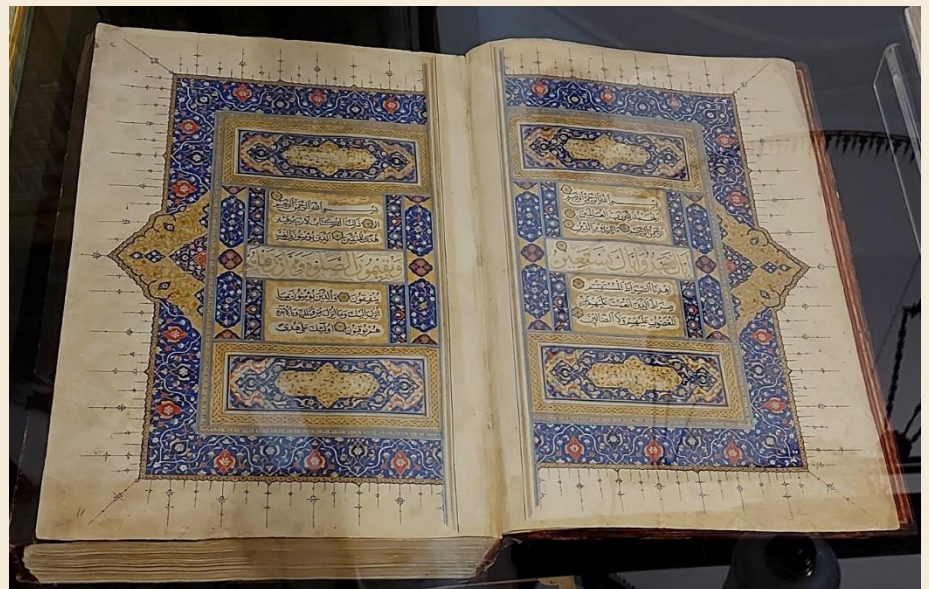 بسم الله الرحمن الرحيم
الحمد لله رب العالمين
الرحمن الرحيم ملك يوم الدين
اياك نعبد واياك نستعين
اهدنا الصراط المستقيم
صراط الذين انعمت عليهم غير
المغضوب عليهم ولا الضالين
بسم الله الرحمن الرحيم
الم ذلك الكتاب لا ريب فيه
هدى للمتقين الذين يؤمنون بالغيب
ويقيمون الصلوة ومما رزقناهم
ينفقون والذين يؤمنون بما
انزل اليك وما انزل من قبلك وبالاخرة
هم يوقنون اولئك على هدى